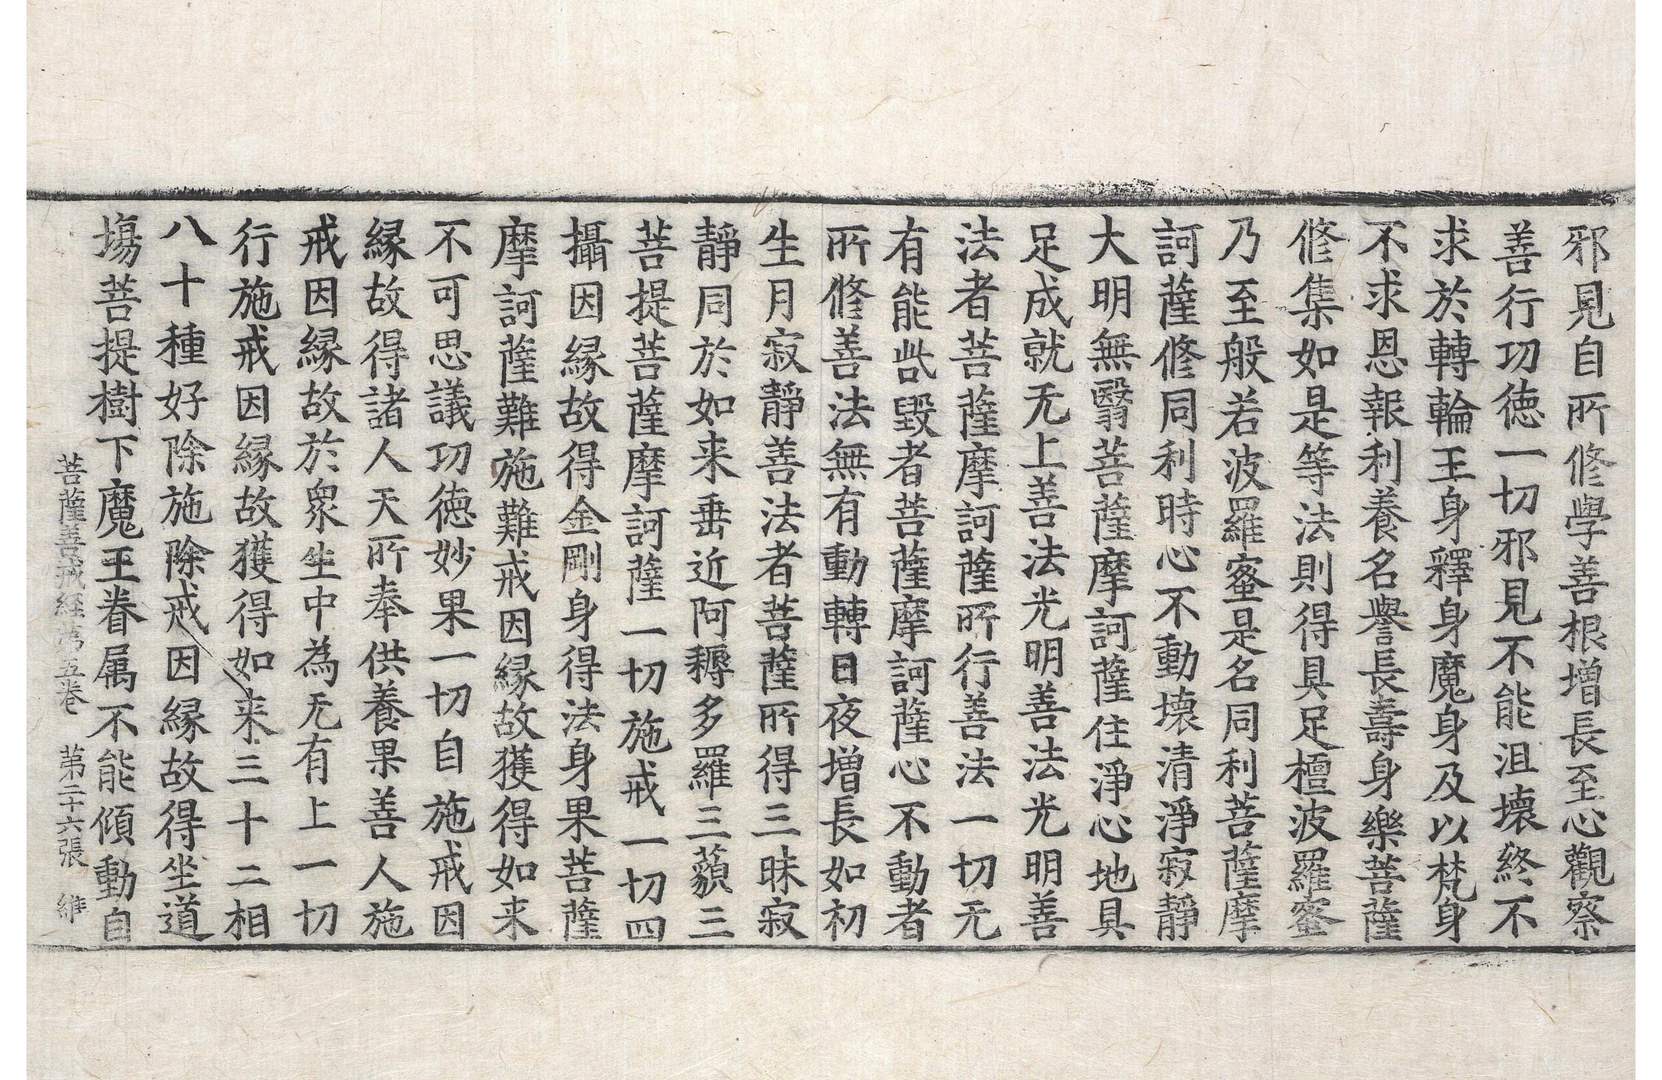 邪見自所修學善根增長至心觀察
善行功徳一切邪見不能沮壞終不
求於轉輪王身釋身魔身及以梵身
不求恩報利養名譽長壽身樂菩薩
修集如是等法則得具足檀波羅蜜
乃至般若波羅蜜是名同利菩薩摩
訶薩修同利時心不動壞清淨寂靜
大明無翳菩薩摩訶薩住淨心地具
足成就无上善法光明善法光明善
法者菩薩摩訶薩所行善法一切无
有能呰毀者菩薩摩訶薩心不動者
所修善法無有動轉日夜增長如初
生月寂靜善法者菩薩所得三昧寂
靜同於如来垂近阿耨多羅三藐三
菩提菩薩摩訶薩一切施戒一切四
攝因縁故得金剛身得法身果菩薩
摩訶薩難施難戒因縁故獲得如来
不可思議功徳妙果一切自施戒因
縁故得諸人天所奉供養果善人施
戒因縁故於衆生中為无有上一切
行施戒因縁故獲得如来三十二相
八十種好除施除戒因縁故得坐道
場菩提樹下魔王眷属不能傾動自
菩薩善戒經第五卷　第二十六張　維